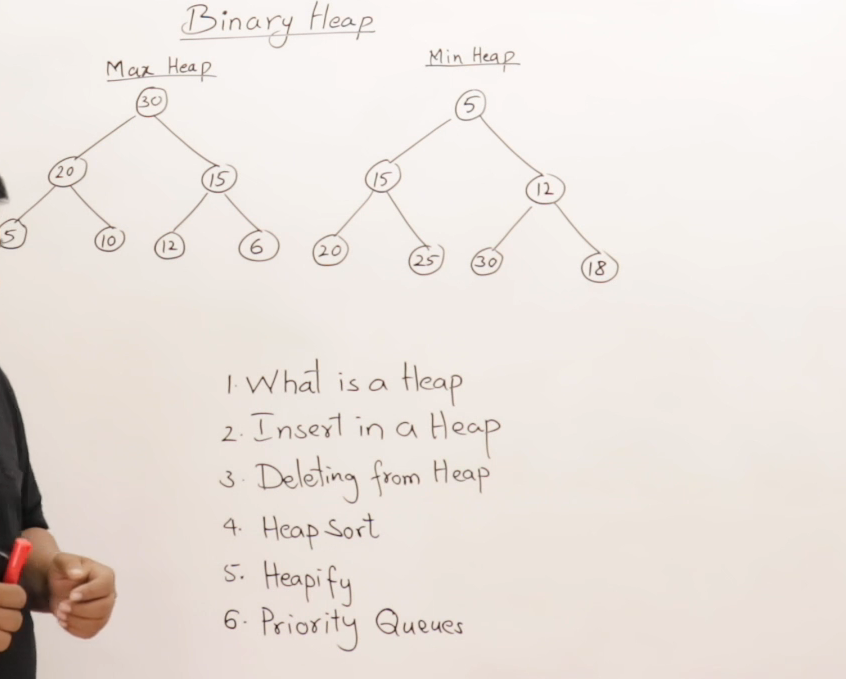 Binary Heap
Max Heap
30
20 15
5 10 12 6
Min Heap
5
15 12
20 25 30 18
1. What is a Heap
2. Insert in a Heap
3. Deleting from Heap
4. Heap Sort
5. Heapify
6. Priority Queues